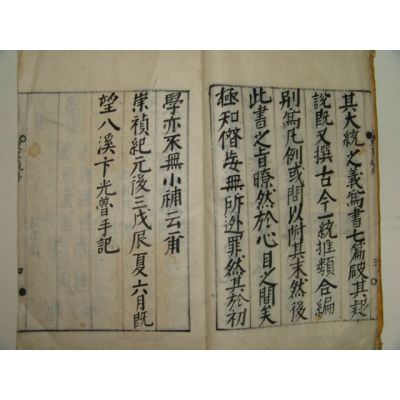 其大統之義爲書七篇破其起
說旣又撰古今一統推類合編
別爲凡例或問以附其末然後
此書之旨瞭然於心目之間矣
極知僭妄無所逃罪然其於初
學亦不無小補云爾
崇禎紀元後三戊辰夏六月旣
望八溪卞光魯手記
四